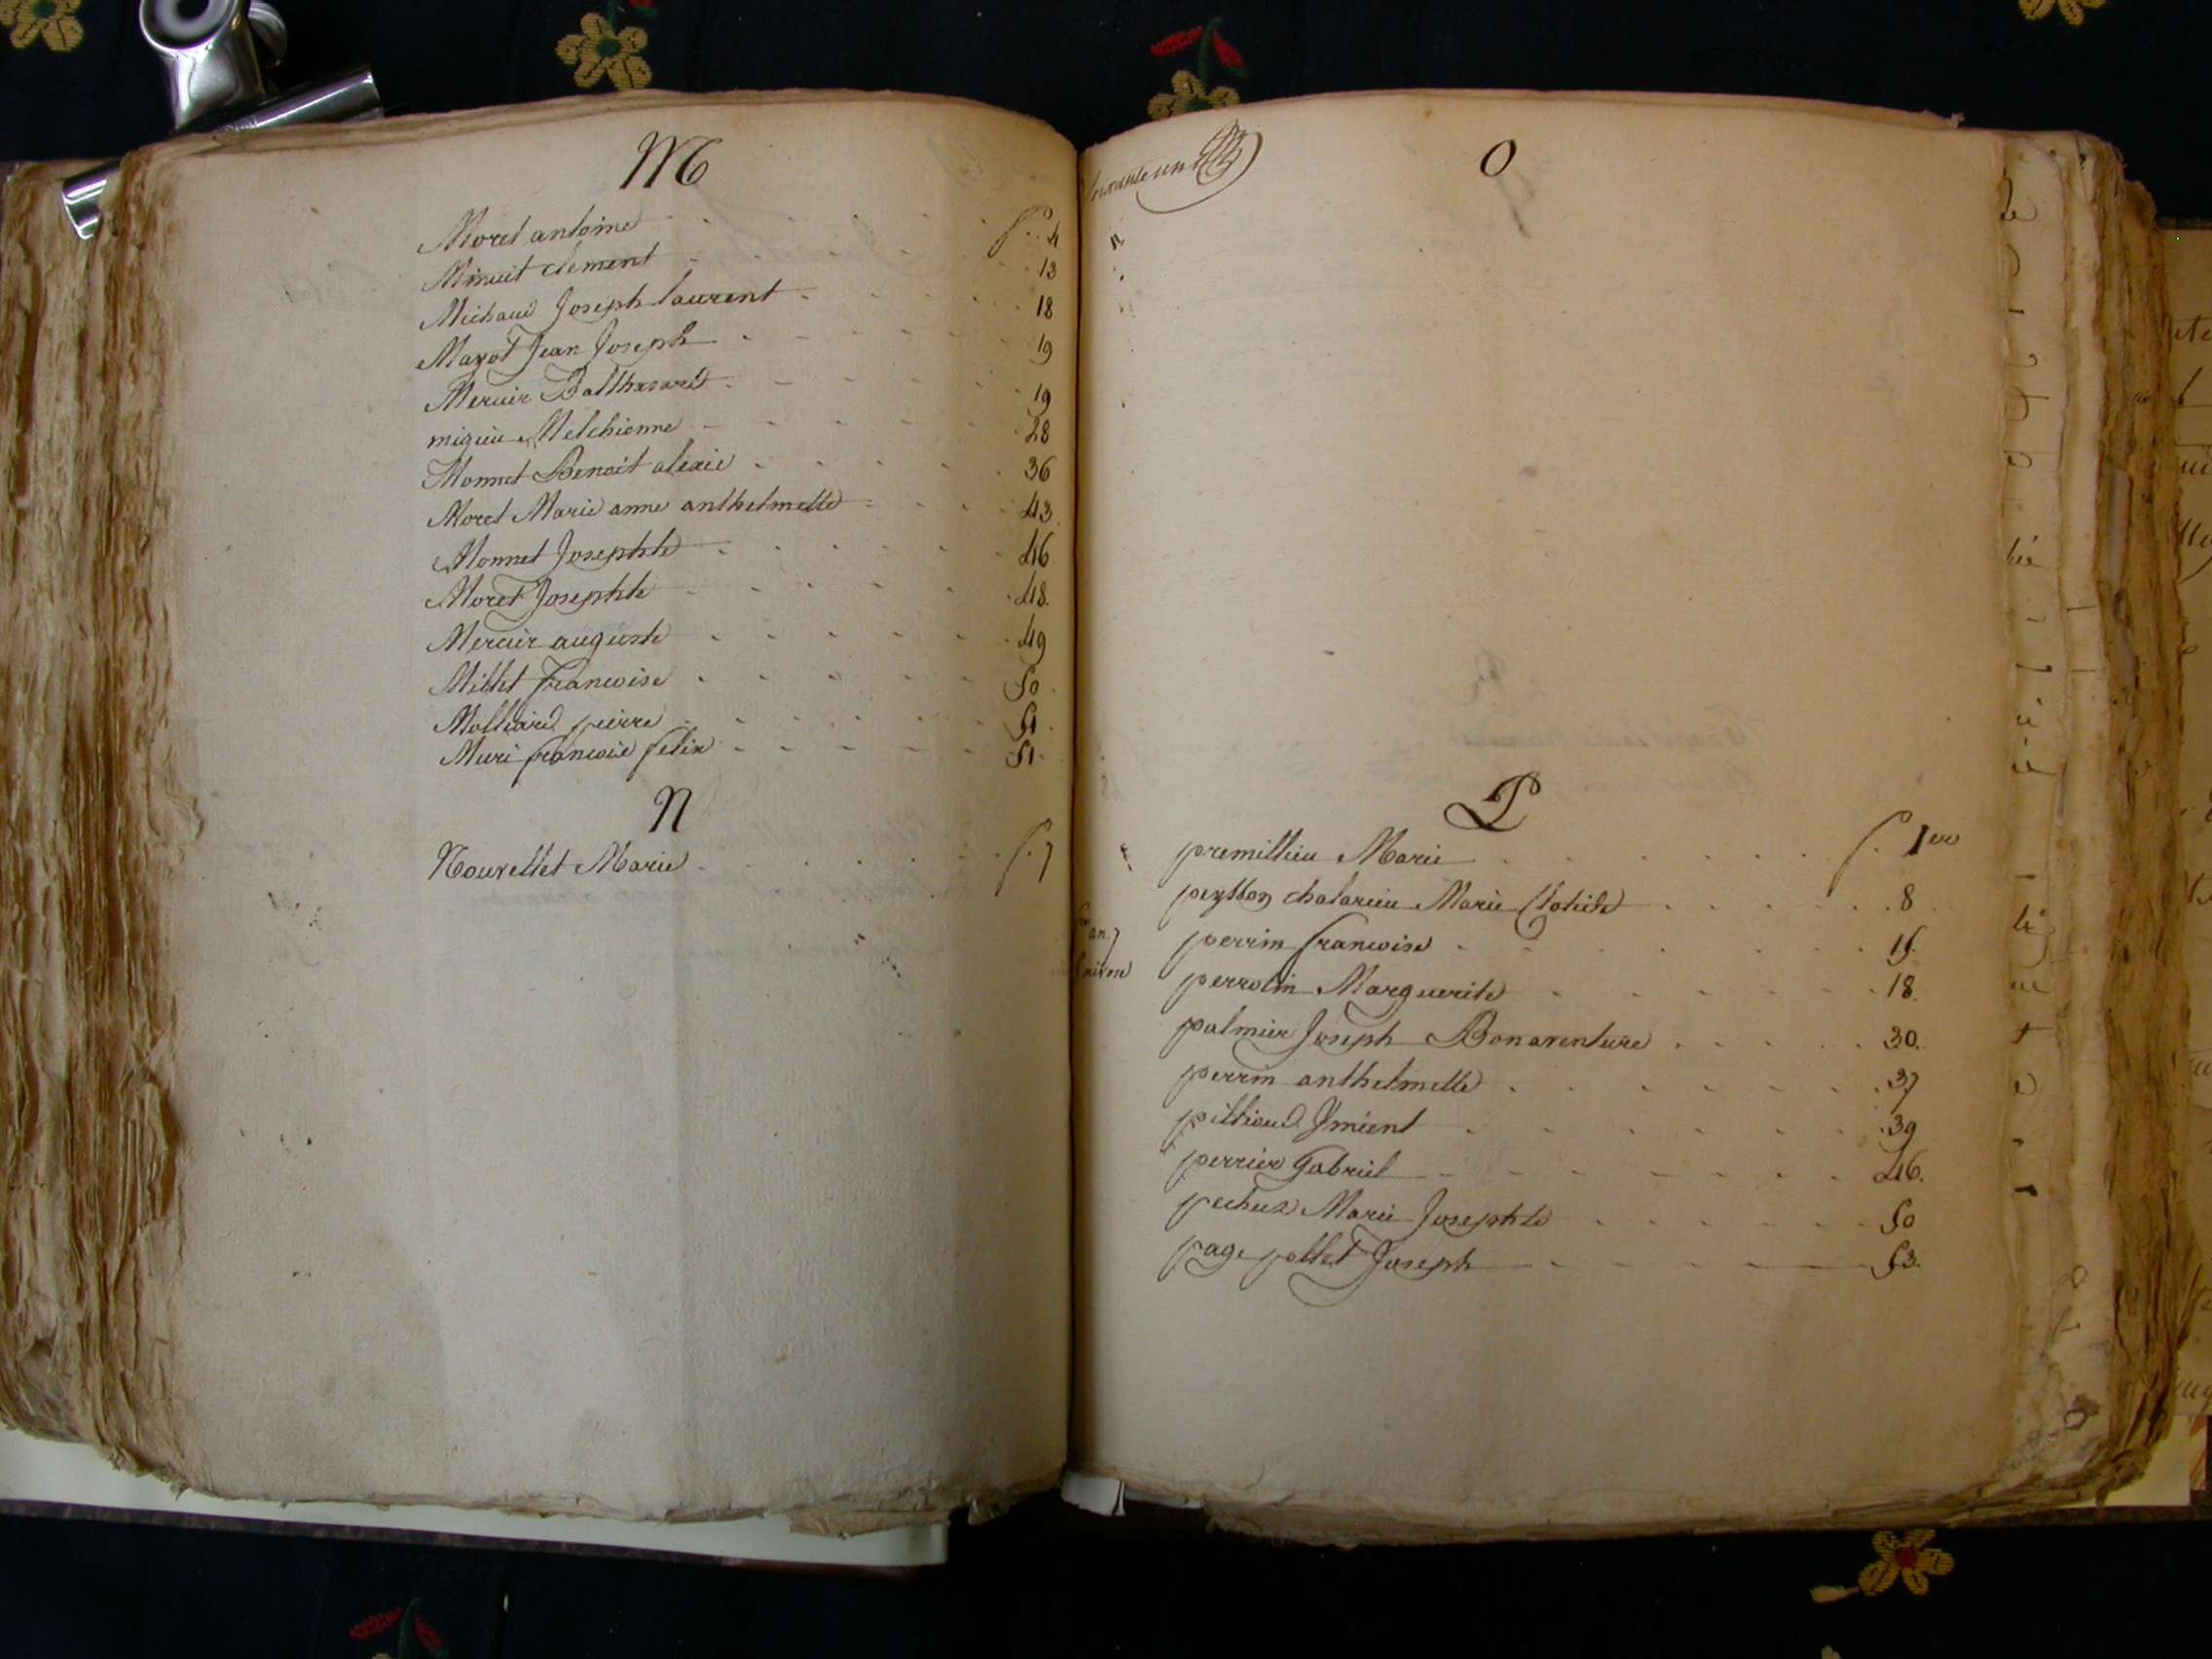 M
Moret antoine f. 4
Minuit clement 13
Michaud Joseph laurent 18
Mayot Jean Joseph 19
Mercier Balthazard 19
miguin Melchionne 28
Monnet Benoit alexis 36
Moret Marie anne anthelmette 43
Monnet Josephte 46
Moret Josephte 48
Mercier auguste 49
Millet Francoise 50
Molliard pierre 51
Muri francois felix 51
N
Nouvellet Marie f. 7
soixante un
O
P
premillieu Marie f. 1er
peysson chalarieu Marie Clotilde 8
perrin francoise 15
perrotin Marguerite 18
palmier Joseph Bonaventure 30
perrin anthelmette 37
pilliaud 39
perrier Gabriel 46
pecheux Marie Josephte 50
page pollet Joseph 53